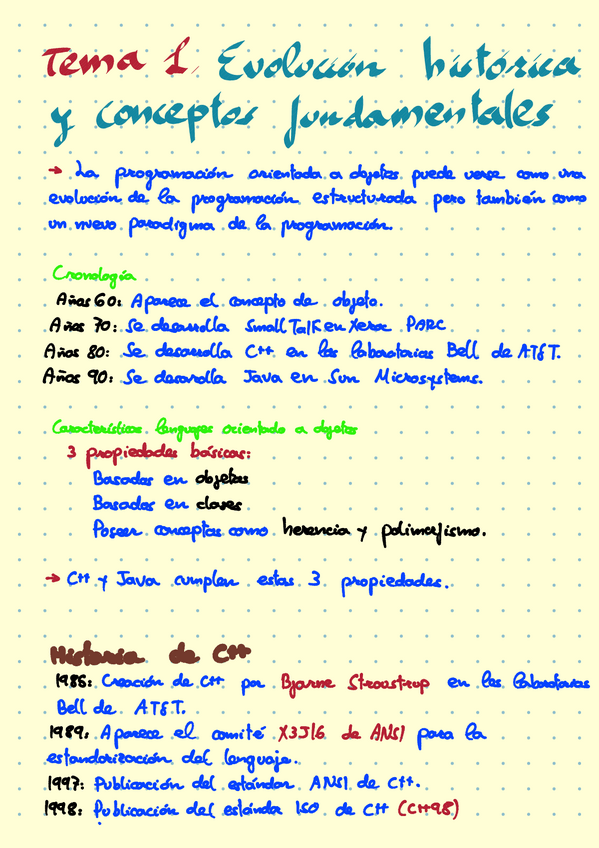 Tema 1. Evolución histórica
y conceptos fundamentales
→ La programación orientada a objetos puede verse como una
evolución de la programación estructurada pero también como
un nuevo paradigma de la programación.
Cronología
Años 60: Aparece el concepto de objeto.
Años 70: Se desarrolla SmallTalk en Xerox PARC
Años 80: Se desarrolla C++ en los laboratorios Bell de AT&T.
Años 90: Se desarrolla Java en Sun Microsystems.
Características lenguajes orientado a objetos
3 propiedades básicas:
Basados en objetos
Basados en clases
Poseer conceptos como herencia y polimorfismo.
→ C++ y Java cumplen estas 3 propiedades.
Historia de C++
1985: Creación de C++ por Bjarne Stroustrup en los laboratorios
Bell de AT&T.
1989: Aparece el comité X3J16 de ANSI para la
estandarización del lenguaje.
1997: Publicación del estándar ANSI de C++.
1998: Publicación del estándar ISO de C++ (C++98)